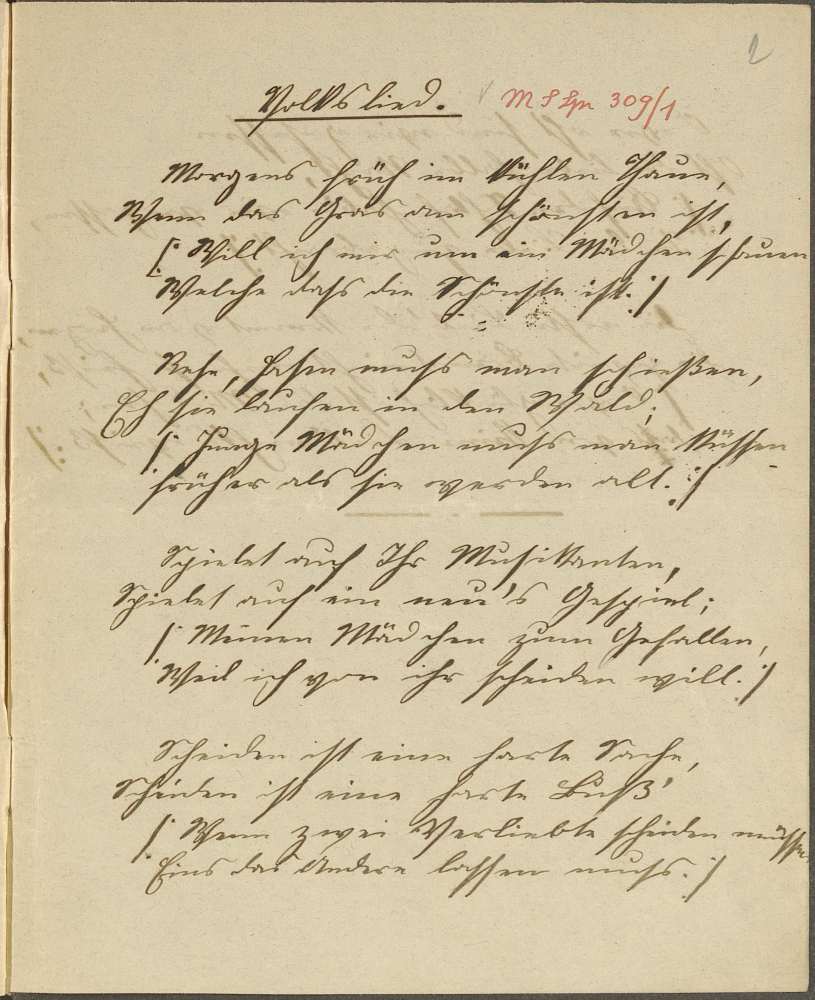 2
Volkslied.
Ms Lpn 309/1
Morgens früh im kühlen Thaue,
Wenn das Gras am schönsten ist,
/: Will ich mir um ein Mädchen schauen
Welche dass die Schönste ist. :/
Rehe, Hasen muss man schießen,
Eh sie laufen in den Wald;
/: Junge Mädchen muss man küssen
früher als sie werden alt. :/
Spielet auf Ihr Musikanten,
Spielet auf ein neu's Gespiel;
/: Meinem Mädchen zum Gefallen,
Weil ich von ihr scheiden will. :/
Scheiden ist eine harte Sache,
Scheiden ist eine harte Buß'
/: Wenn zwei Verliebte scheiden müssen,
Eins das Andere lassen muss. :/